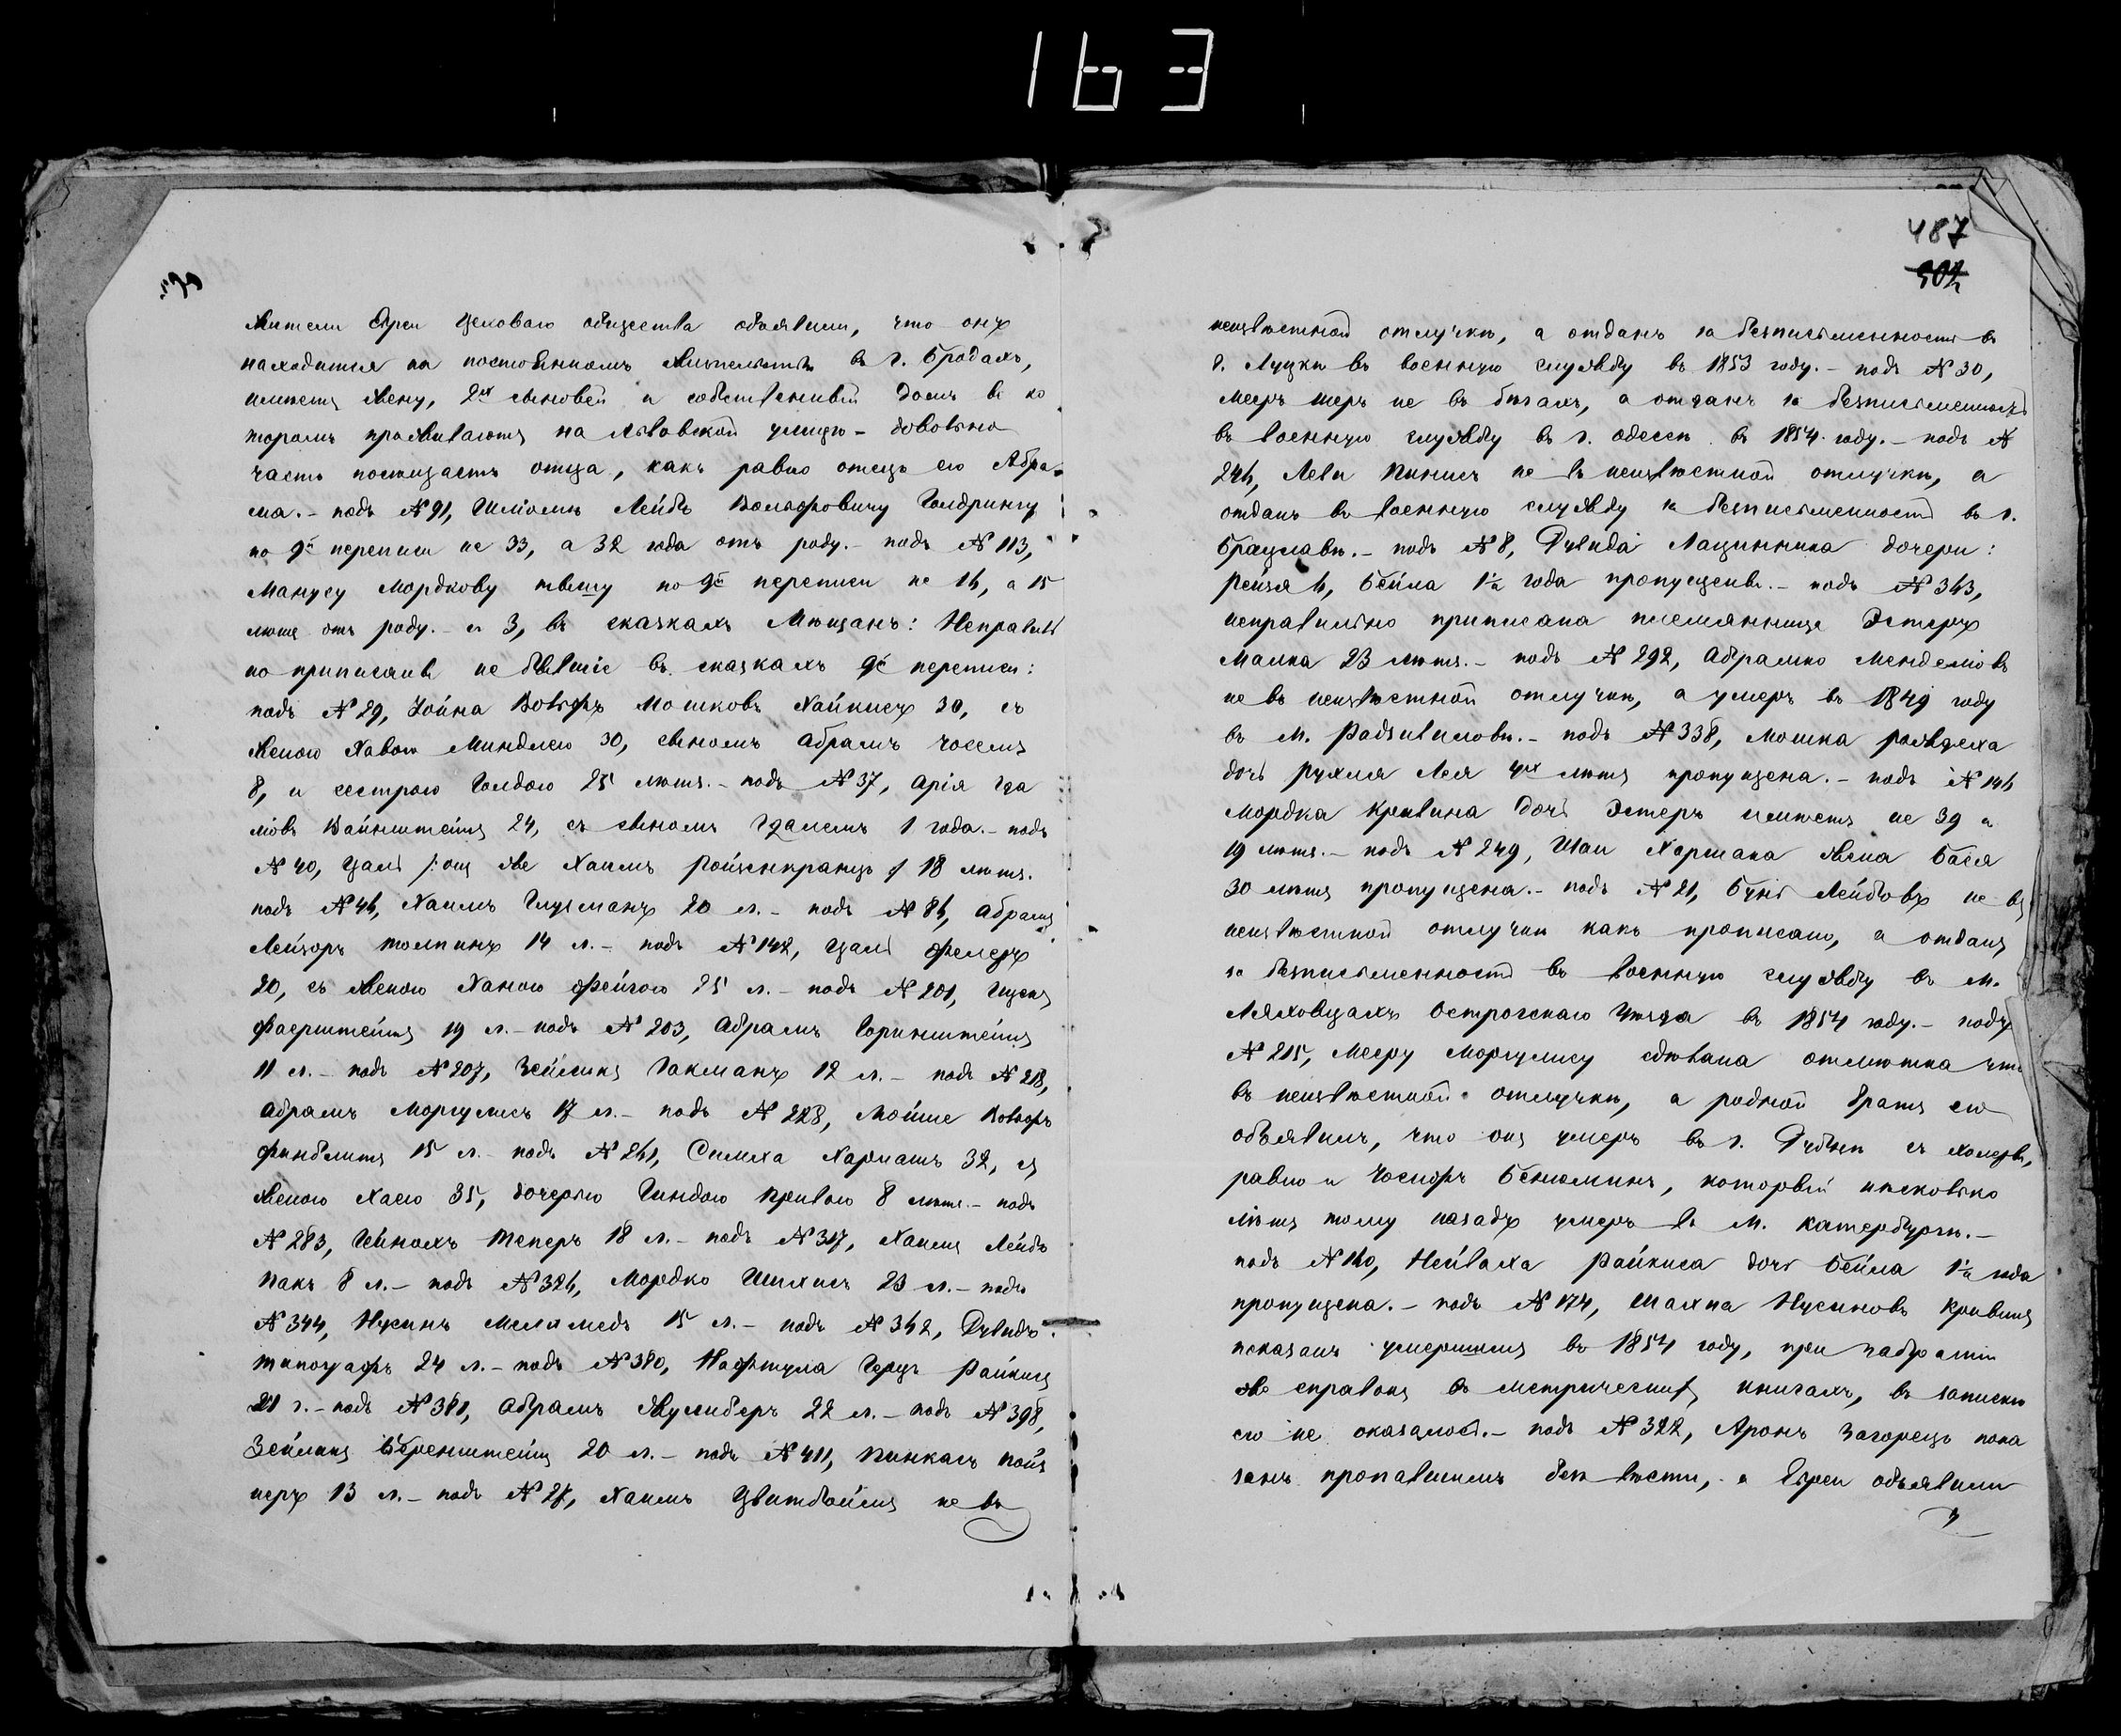 163
жители Евреи цеховаго общества объявили, что онъ
находится на постоянномъ жительствѣ въ г. Бродахъ,
имѣетъ жену, 2хъ сыновей и собственный домъ въ ко
торомъ проживаютъ на Львовской улицѣ – довольно
часто посищаетъ отца, какъ равно отецъ его Абра-
ма. – подъ № 91, Шліомѣ Лейбѣ Вольфовичу Голдрингу
по 9й переписи не 33, а 32 года отъ роду. – подъ № 113,
Манусу Мордкову по 9й переписи не 16, а 15
лѣтъ отъ роду. – и 3, въ сказкахъ Мѣщанъ: Неправиль
но приписаны не бывшіе въ сказкахъ 9й переписи:
подъ № 29, Іойна Вольфъ Мошковъ Хайкисъ 30, съ
женою Хавою Миндлею 30, сыномъ Абрамъ Іоселъ
8, и сестрою Голдою 25 лѣтъ. – подъ № 37, Арія Гда
ліовъ Вайнштейнъ 24, съ сыномъ Гдалемъ 1 года. – подъ
№ 40, Цаль /: онъ же Хаимъ Ройзенкранцъ :/ 18 лѣтъ.
подъ № 46, Хаимъ Глузманъ 20 л. – подъ № 86, Абрамъ
Лейзоръ Толпинъ 14 л. – подъ № 142, Цаль Фелеръ
20, съ женою Ханою Фейгою 25 л. – подъ № 201, Ицекъ
Фаерштейнъ 19 л. – подъ № 203, Абрамъ Горинштейнъ
11 л. – подъ № 207, Зейликъ Гакманъ 12 л. – подъ № 218,
Абрамъ Моргулисъ 17 л. – подъ № 228, Мойше Вольфъ
Финблитъ 15 л. – подъ № 261, Симха Харматъ 32, съ
женою Хаею 35, дочерью Гиндою Привою 8 лѣтъ. – подъ
№ 283, Гейнохъ Теперъ 18 л. – подъ № 317, Хаимъ Лейбъ
Пакъ 8 л. – подъ № 326, Мордко Шихисъ 23 л. – подъ
№ 344, Нусинъ Меламедъ 15 л. – подъ № 362, Дувидъ
Типографъ 24 л. – подъ № 380, Нафтула Герцъ Райкисъ
21 г. – подъ № 381, Абрамъ Жулиберъ 22 л. – подъ № 398,
Зейликъ Беренштейнъ 20 л. – подъ № 411, Пинкасъ Пой
неръ 13 л. – подъ № 27, Хаимъ Цвитбоймъ не въ
487
502
неизвѣстной отлучкѣ, а отданъ за безписьменность въ
г. Луцкѣ въ военную службу въ 1853 году. – подъ № 30,
Мееръ Шеръ не въ бѣгахъ, а отданъ за безписьменность
въ военную службу въ г. Одессѣ въ 1854 году. – подъ №
246, Леви Пинисъ не въ неизвѣстной отлучкѣ, а
отданъ въ военную службу за безписьменность въ г.
Брацлавѣ. – подъ № 8, Дувида Лацинника дочери:
Рейзя 6, Бейла 1½ года пропущены. – подъ № 363,
неправильно приписана племянница Эстеръ
Малка 23 лѣтъ. – подъ № 292, Абрамко Менделіовъ
не въ неизвѣстной отлучкѣ, а умеръ въ 1849 году
въ м. Радзивиловѣ. – подъ № 338, Мошка
дочь Рухля Лея 4хъ лѣтъ пропущена. – подъ № 146
Мордка Кривина дочь Эстеръ имѣетъ не 39 а
19 лѣтъ. – подъ № 249, Шаи Хармана жена Бася
30 лѣтъ пропущена. – подъ № 21, Бунь Лейбовъ не въ
неизвѣстной отлучкѣ какъ прописано, а отданъ
за безписьменность въ военную службу въ м.
Ляховцахъ Острогскаго Уѣзда въ 1854 году. – подъ
№ 215, Мееру Моргулису сдѣлана отмѣтка что
въ неизвѣстной отлучкѣ, а родной братъ его
объявилъ, что онъ умеръ въ г. Дубнѣ съ холеры,
равно и Іосифъ Бенюминъ, который нѣсколько
лѣтъ тому назадъ умеръ въ м. Катербургѣ. –
подъ № 160, Нейваха Райкиса дочь Бейла 1½ года
пропущена. – подъ № 174, Шахна Нусиновъ Кривинъ
показанъ умершимъ въ 1854 году, при
же справокъ въ метрическихъ книгахъ, въ записки
его не оказалось. – подъ № 322, Аронъ Загорецъ пока
занъ пропавшимъ безъ вѣсти, а Евреи объявили